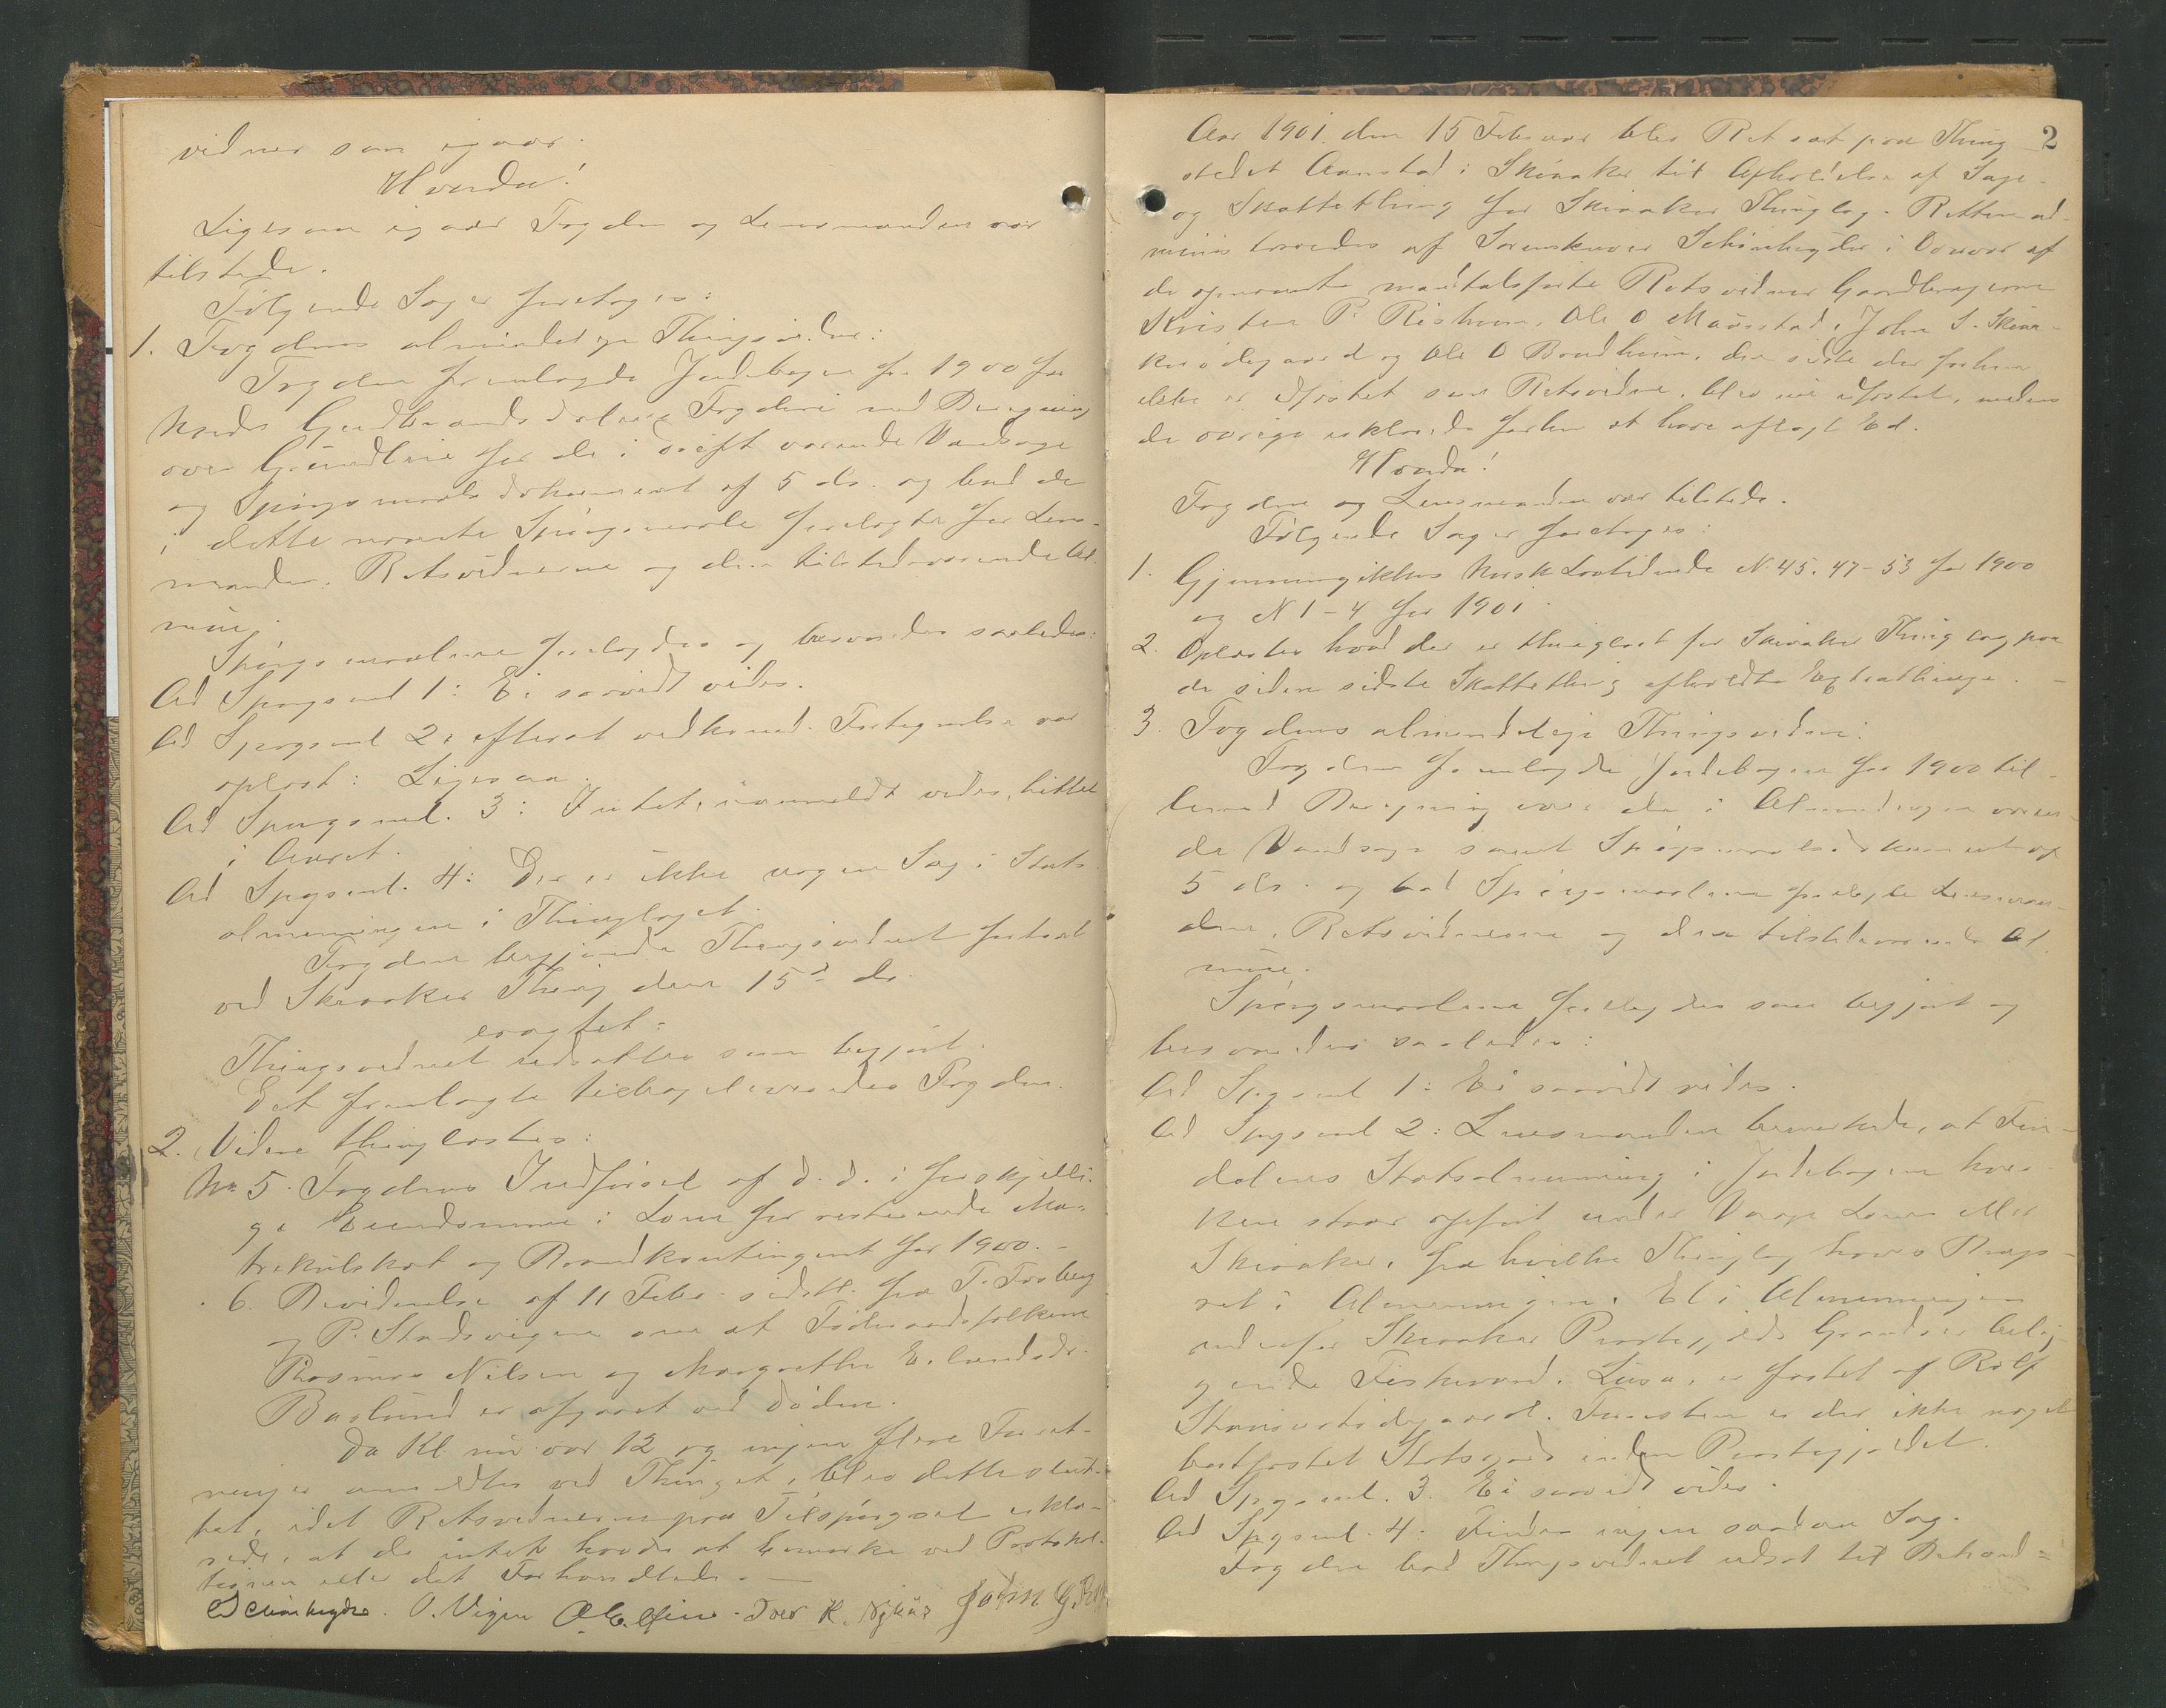 vidner som igaar.
Hvorda!
Ligesom igaar Fogden og Lensmanden var
tilstede.
Følgende Sager foretoges:
1. Fogdens almindelige Thingsvidne:
Fogden fremlagde Jordebogen for 1900 for
Nordre Gudbrandsdalens Fogderi med Beregning
over Grundleie for de i Drift værende Vandsage
og Spørgsmaalsdokument af 5 ds. og bad de
i dette nævnte Spørgsmaale forelagte for Lens-
manden, Retsvidnerne og den tilstedeværende Al-
mue.
Spørgsmaalene forelagdes og besvaredes saaledes:
Ad Spørgsml 1: Ei saavidt vides.
Ad Spørgsml 2, efterat vedkomd. Fortegnelse var
oplæst: Ligesaa.
Ad Spørgsml. 3: Intet, saavidt vides, hittet
i Aaret.
Ad Spgsml. 4: Der er ikke nogen Sag i Stats
almenningen i Thinglaget.
Fogden begjærede Thingsvidnet fortsat
ved Skiaaker Thing den 15de ds.
eragtet:
Thingsvidnet udsættes som begjært.
Det fremlagte tilbageleveredes Fogden.
2. Videre thinglæstes:
No 5. Fogdens Indførsel af d. d. i forskjelli-
ge Eiendomme i Lom for resterende Ma-
trikulskat og Brandkontingent for 1900. -
" 6. Bevidnelse af 11 Febr. sidstl. fra T. Froberg
og P. Stadsvigen om at Føderaadsfolkene
Rasmus Nilsen og Margrethe Erlandsdr.
Baglund er afgaaet ved Døden.
Da Kl. nu var 12 og ingen flere Forret-
ninger anmeldtes ved Thinget, blev dette slut-
tet, idet Retsvidnerne paa Tilspørgsel erklæ-
rede, at de intet havde at bemærke ved Protokol-
tionen eller det Forhandlede. -
Schønheyder. O. Vigen Iver K. Nyhus John G.
2
Aar 1901 den 15 Februar blev Ret sat paa Thing
stedet Aanstad i Skiaaker til Afholdelse af Sage-
og Skattething for Skiaaker Thinglag. Retten ad-
ministreredes af Sorenskriver Schønheyder i Overvær af
de opnævnte mandtalsførte Retsvidner Gaardbrugerne
Kristen P. Rishum, Ole O Maurstad, John S. Skiaa-
kerødegaard og Ole O Brudheim, den sidste der forhen
ikke er edfæstet som Retsvidne, blev nu edfæstet, medens
de øvrige erklærede forhen at have aflagt Ed.
Hvorda!
Fogden og Lensmanden var tilstede.
Følgende Sager foretoges:
1. Gjennemgikkes Norsk Lovtidende N 45, 47-53 for 1900
og N 1-4 for 1901.
2. Oplæstes hvad der er thinglæst for Skiaaker Thinglag paa
de siden sidste Skattething afholdte Extrathinge. -
3. Fogdens almindelige Thingsvidne:
Fogden fremlagde Jordebogen for 1900 til-
ligemed Beregning over de i Almenningen væren-
de Vandsage samt Spørgsmaalsdokument af
5 ds. og bad Spørgsmaalene forelagte Lensman-
den, Retsvidnerne og den tilstedeværende Al
mue.
Spørgsmaalene forelagdes som begjært og
besvaredes saaledes:
Ad Spgsml 1: Ei saavidt vides.
Ad Spgsml 2: Lensmanden bemærkede, at Fin-
dalens Statsalmenning i Jordebogen hver-
ken staar opført under Vaage Lom eller
Skiaaker, fra hvilke Thinglag haves Brugs-
ret i Almenningen. Et i Almenningen
udenfor Skiaaker Præstegjelds Grændser belig-
gende Fiskevand, Leirea, er fæstet af Rolf
Skamsarødegaard. Forresten er der ikke noget
bortfæstet Statsgods inden Præstegjeldet.
Ad Spgsml. 3. Ei saavidt vides.
Ad Spgsml. 4. Findes ingen saadan Sag.
Fogden bad Thingsvidnet udsat til Behand-